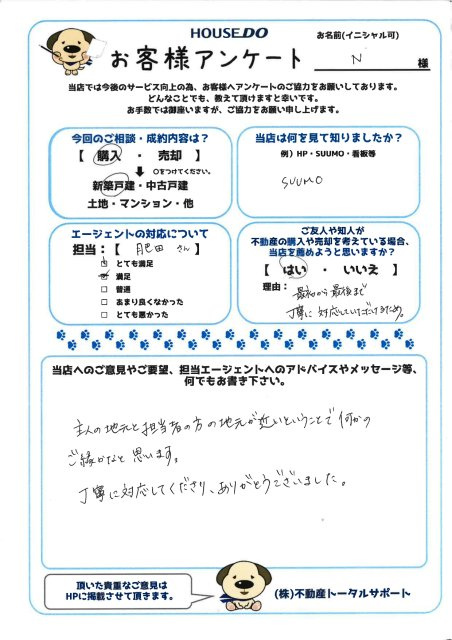 HOUSEDO
お客様アンケート
お名前(イニシャル可)
N 様
当店では今後のサービス向上の為、お客様へアンケートのご協力をお願いしております。
どんなことでも、教えて頂けますと幸いです。
お手数では御座いますが、ご協力をお願い申し上げます。
今回のご相談・成約内容は?
【 購入 ・ 売却 】
○をつけてください。
新築戸建・中古戸建
土地・マンション・他
当店は何を見て知りましたか?
例)HP・SUUMO・看板等
SUUMO
エージェントの対応について
担当:【 肥田 さん 】
とても満足
満足
普通
あまり良くなかった
とても悪かった
ご友人や知人が
不動産の購入や売却を考えている場合、
当店を薦めようと思いますか?
【 はい ・ いいえ 】
理由: 最初から最後まで
丁寧に対応していただけるため。
当店へのご意見やご要望、担当エージェントへのアドバイスやメッセージ等、
何でもお書き下さい。
主人の地元と担当者の方の地元が近いということで何かの
ご縁かなと思います。
丁寧に対応してくださり、ありがとうございました。
頂いた貴重なご意見は
HPに掲載させて頂きます。
(株)不動産トータルサポート